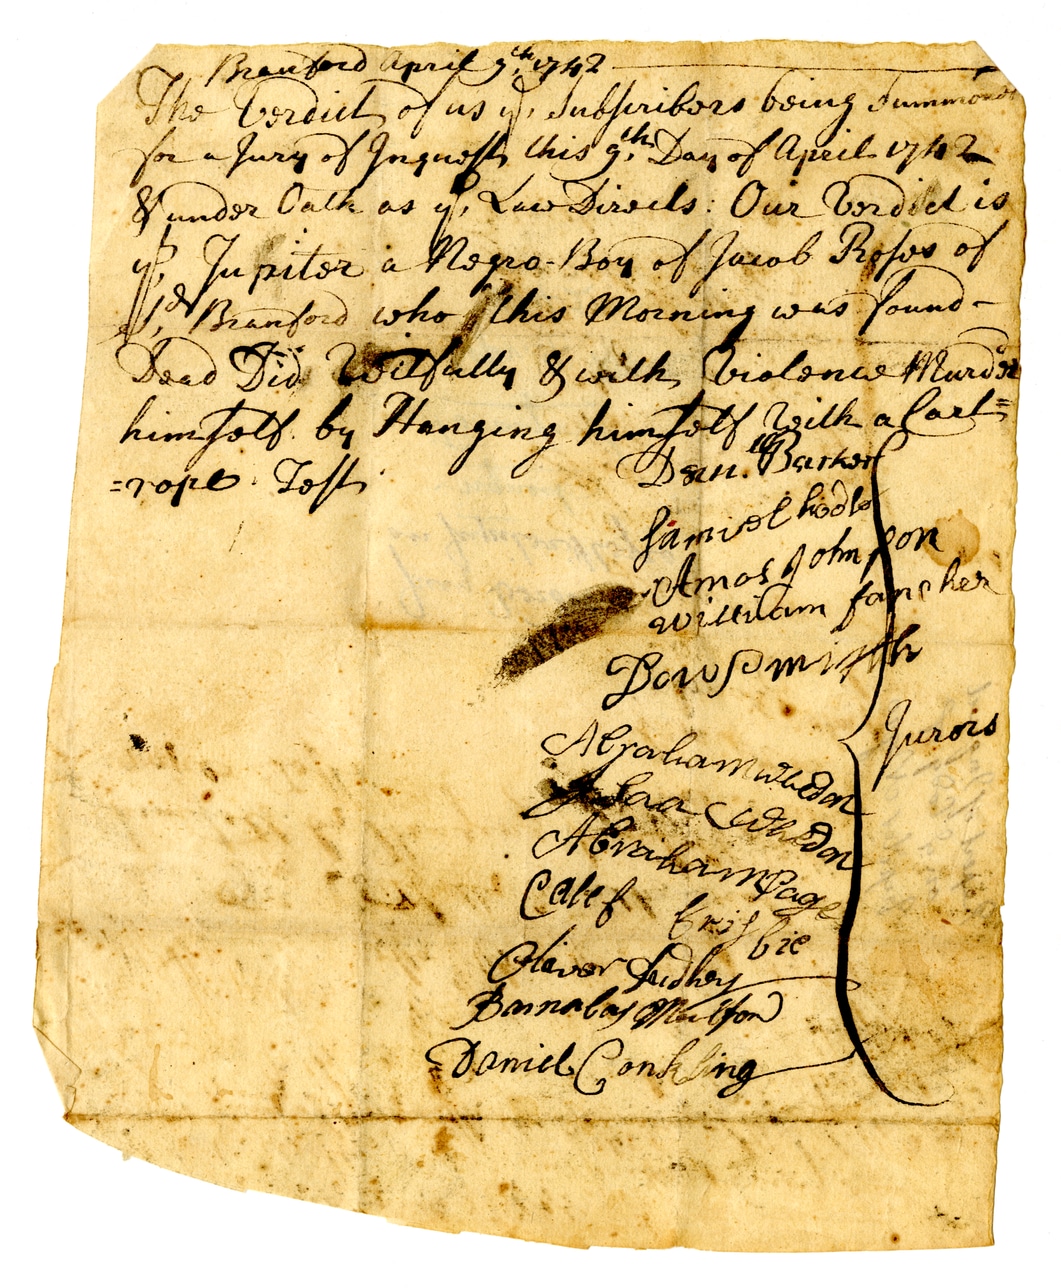 Branford April 9th 1742
The Verdict of us ye Subscribers being Summoned
for a Jury of Inquest, this 9th Day of April 1742
& under Oath as ye Law Directs: Our Verdict is
yt Jupiter a Negro-Boy of Jacob Roses of
sd Branford who this Morning was found-
Dead Did Wilfully & with Violence Murder
himself by Hanging himself With a Cart=
=rope Test
Danll Barker
Samuel hodle
Amos Johnson
William fancher
Dow Smith
Jurors
Abraham Whedon
Isaa Whedon
Abraham Page
Caleb frisbie
Oliver
Barnabas Mulford
Daniel Conkling